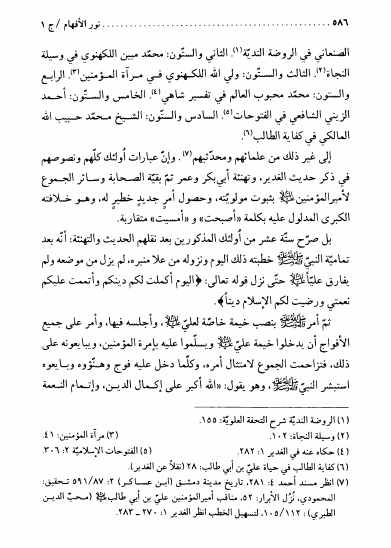 ٥٨٦ ........ نور الأفهام / ج ١
الصنعاني في الروضة النديّة(١). الثاني والستّون: محمّد مبين اللكهنوي في وسيلة
النجاة(٢). الثالث والستّون: ولي الله اللكهنوي في مرآة المؤمنين(٣). الرابع
والستون: محمّد محبوب العالم في تفسير شاهي(٤). الخامس والستّون: أحمد
الزيني الشافعي في الفتوحات(٥). السادس والستّون: الشيخ محمّد حبيب الله
المالكي في كفاية الطالب(٦).
إلى غير ذلك من علمائهم ومحدّثيهم(٧). وإنّ عبارات أُولئك كلّهم ونصوصهم
في ذكر حديث الغدير، وتهنئة أبي‌بكر وعمر ثمّ بقيّة الصحابة وسائر الجموع
لأميرالمؤمنين عليه السلام بثبوت مولويّته، وحصول أمر جديدٍ خطيرٍ له، وهو خلافته
الكبرى المدلول عليه بكلمة «أصبحت» و «أمسيت» متقاربة.
بل صرّح ستّة عشر من أُولئك المذكورين بعد نقلهم الحديث والتهنئة: أنّه بعد
تماميّة النبيّ صلى الله عليه وآله خطبته ذلك اليوم ونزوله من علا منبره، لم يزل من موضعه ولم
يفارق عليّاً عليه السلام حتّى نزل قوله تعالى: ﴿اليوم أكملت لكم دينكم وأتممت عليكم
نعمتي ورضيت لكم الإسلام ديناً﴾.
ثمّ أمر صلى الله عليه وآله بنصب خيمة خاصّة لعليّ عليه السلام، وأجلسه فيها، وأمر على جميع
الأفواج أن يدخلوا خيمة عليّ عليه السلام ويسلّموا عليه بإمرة المؤمنين، ويبايعونه على
ذلك، فتزاحمت الجموع لامتثال أمره، وكلّما دخل عليه فوج وهنّؤوه وبايعوه
استبشر النبيّ صلى الله عليه وآله، وهو يقول: «الله أكبر على إكمال الدين، وإتمام النعمة
(١) الروضة النديّة شرح التحفة العلويّة: ١٥٥.
(٢) وسيلة النجاة: ١٠٢. (٣) مرآة المؤمنين: ٤١.
(٤) حكاه عنه في الغدير ١: ٢٨٢. (٥) الفتوحات الإسلاميّة ٢: ٣٠٦.
(٦) كفاية الطالب في حياة عليّ بن أبي طالب: ٢٨ (نقلاً عن الغدير).
(٧) انظر مسند أحمد ٤: ٢٨١، تاريخ مدينة دمشق (ابن عساكر) ٢: ٥٩١/٨٧ تحقيق:
المحمودي، نُزُل الأبرار: ٥٢، مناقب أميرالمؤمنين عليّ بن أبي طالب عليه السلام (محبّ الدين
الطبري): ١٠٥/١١٢، لتسهيل الخطب انظر الغدير ١: ٢٧٠ ـ ٢٨٣.